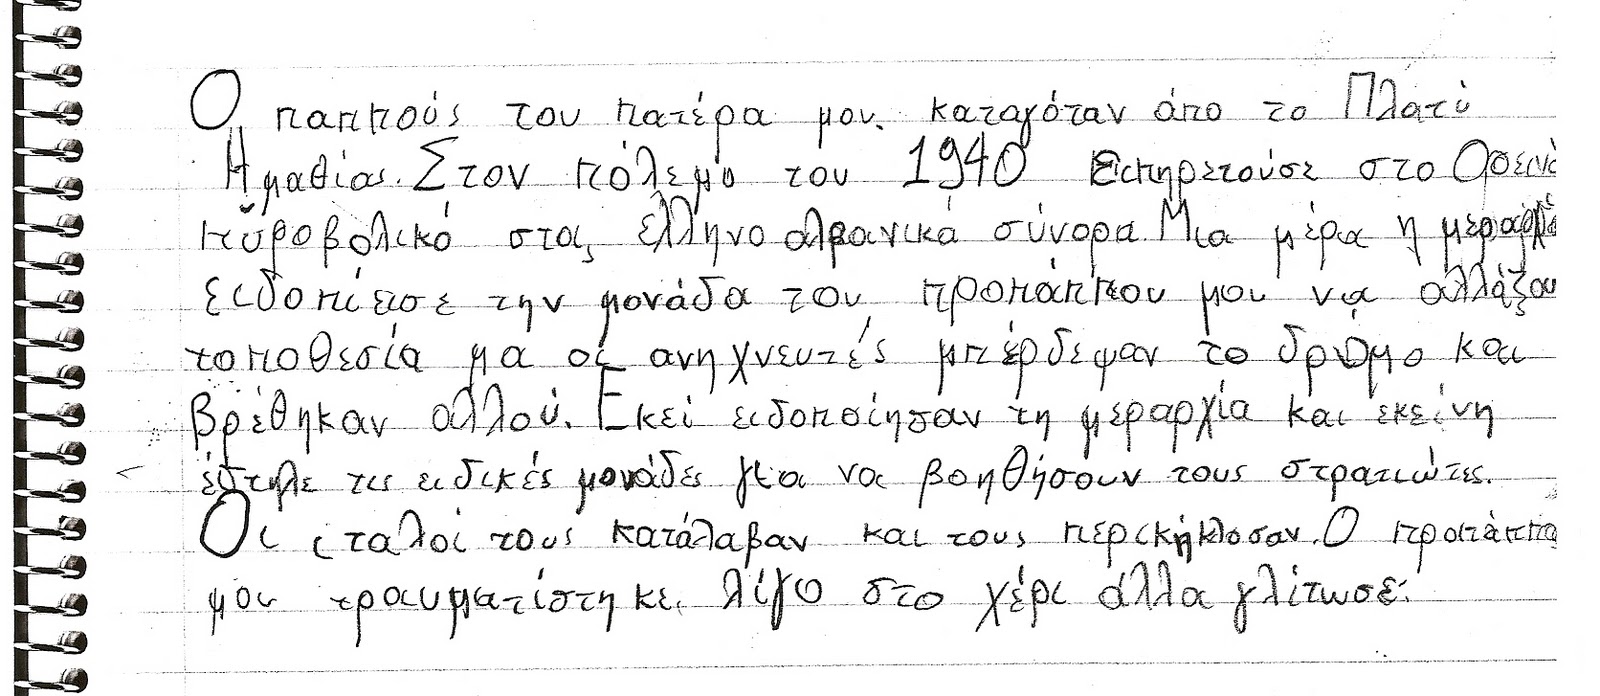 Ο παππούς του πατέρα μου καταγόταν άπο το Πλατύ
Ημαθίας. Στον πόλεμο του 1940 Εισπηρετούσε στο Ορεινό
πυροβολικό στα ελληνοαλβανικά σύνορα. Μια μέρα η μεραρχία
ειδοπίεισε την μονάδα του προπάππου μου να αλλάξου
τοποθεσία μα οί ανηχνευτές μπέρδεψαν το δρόμο και
βρέθηκαν αλλού. Εκεί ειδοποίησαν τη μεραρχία και εκείνη
έστηλε τις ειδικές μονάδες για να βοηθήσουν τους στρατιώτες.
Οι ιταλοί τους κατάλαβαν και τους περικήκλοσαν. Ο προπάππο
μου τραυματίστηκε λίγο στο χέρι άλλα γλίτωσε.